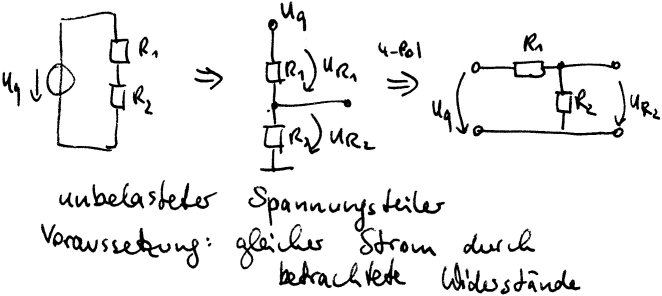 U_q
R_1
R_2
⇒
U_q
R_1
U_R1
R_2
U_R2
4-Pol
⇒
R_1
U_q
R_2
U_R2
unbelasteter Spannungsteiler
Voraussetzung: gleicher Strom durch
betrachtete Widerstände